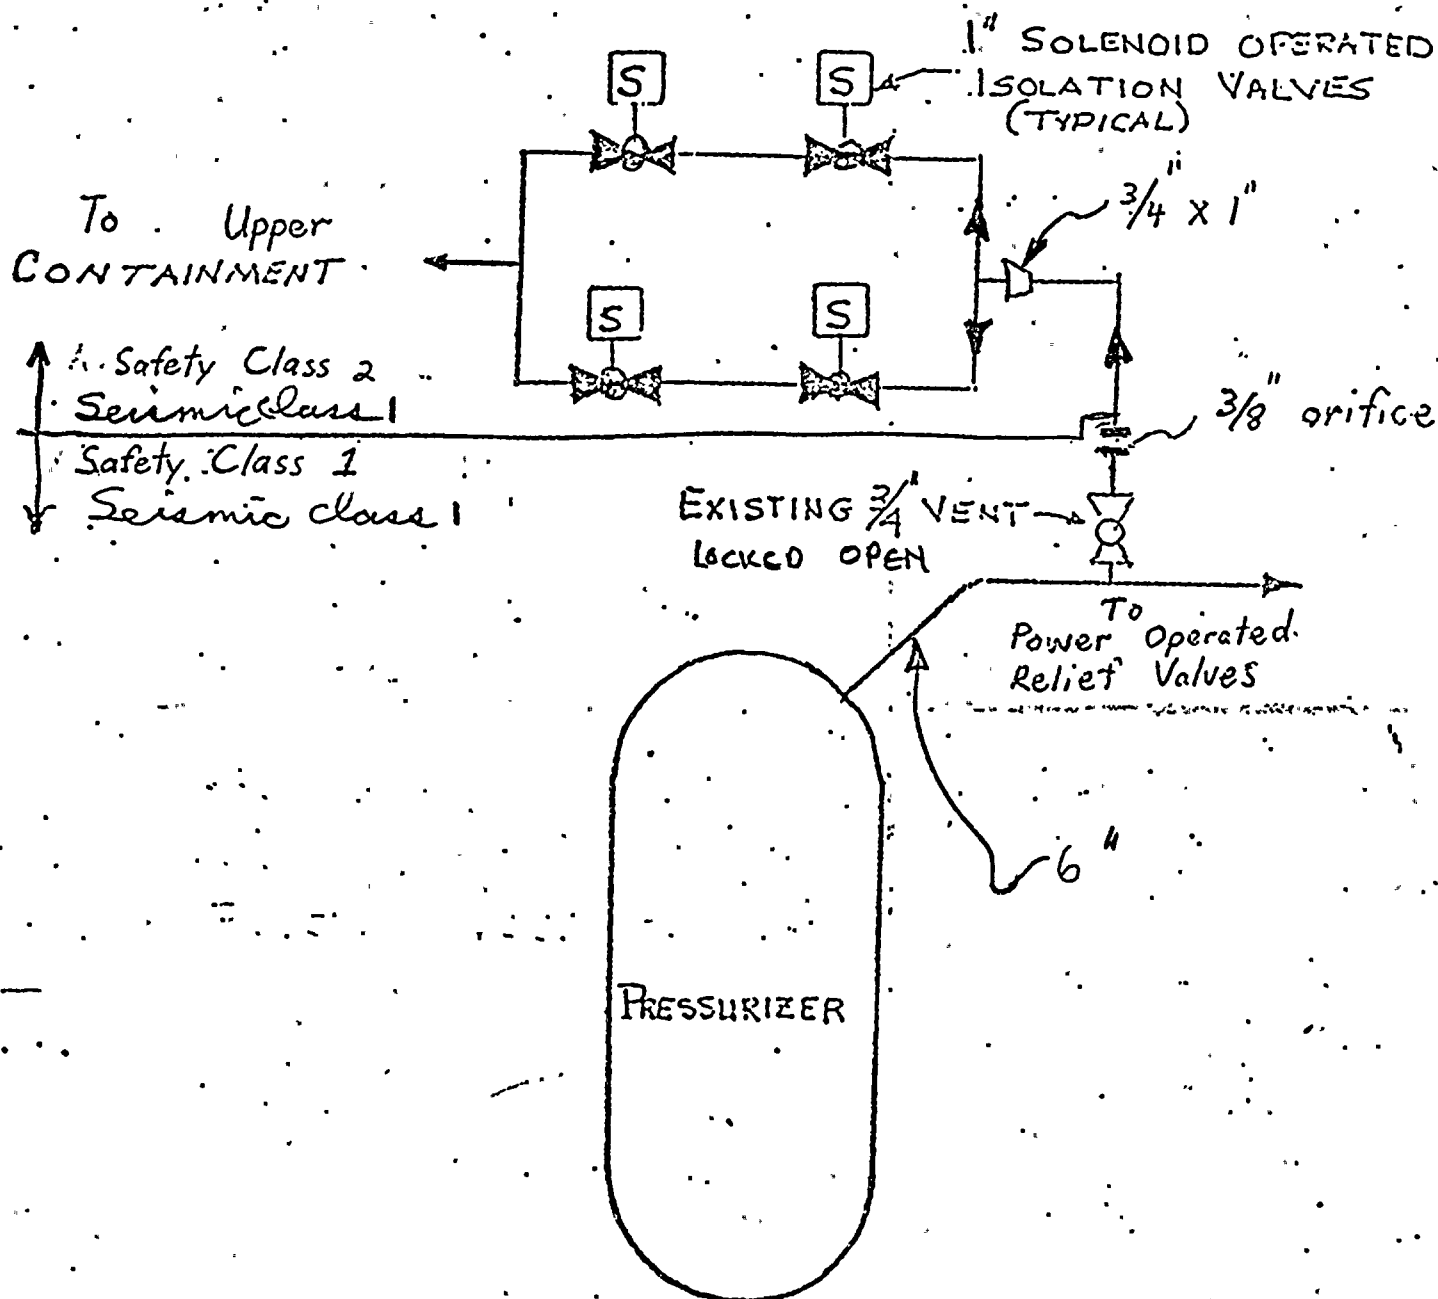 1" SOLENOID OPERATED
ISOLATION VALVES
(TYPICAL)
S
S
3/4" X 1"
To Upper
CONTAINMENT
S
S
Safety Class 2
Seismic Class 1
3/8" orifice
Safety Class 1
Seismic class 1
EXISTING 3/4" VENT
LOCKED OPEN
To
Power Operated
Relief Valves
6"
PRESSURIZER